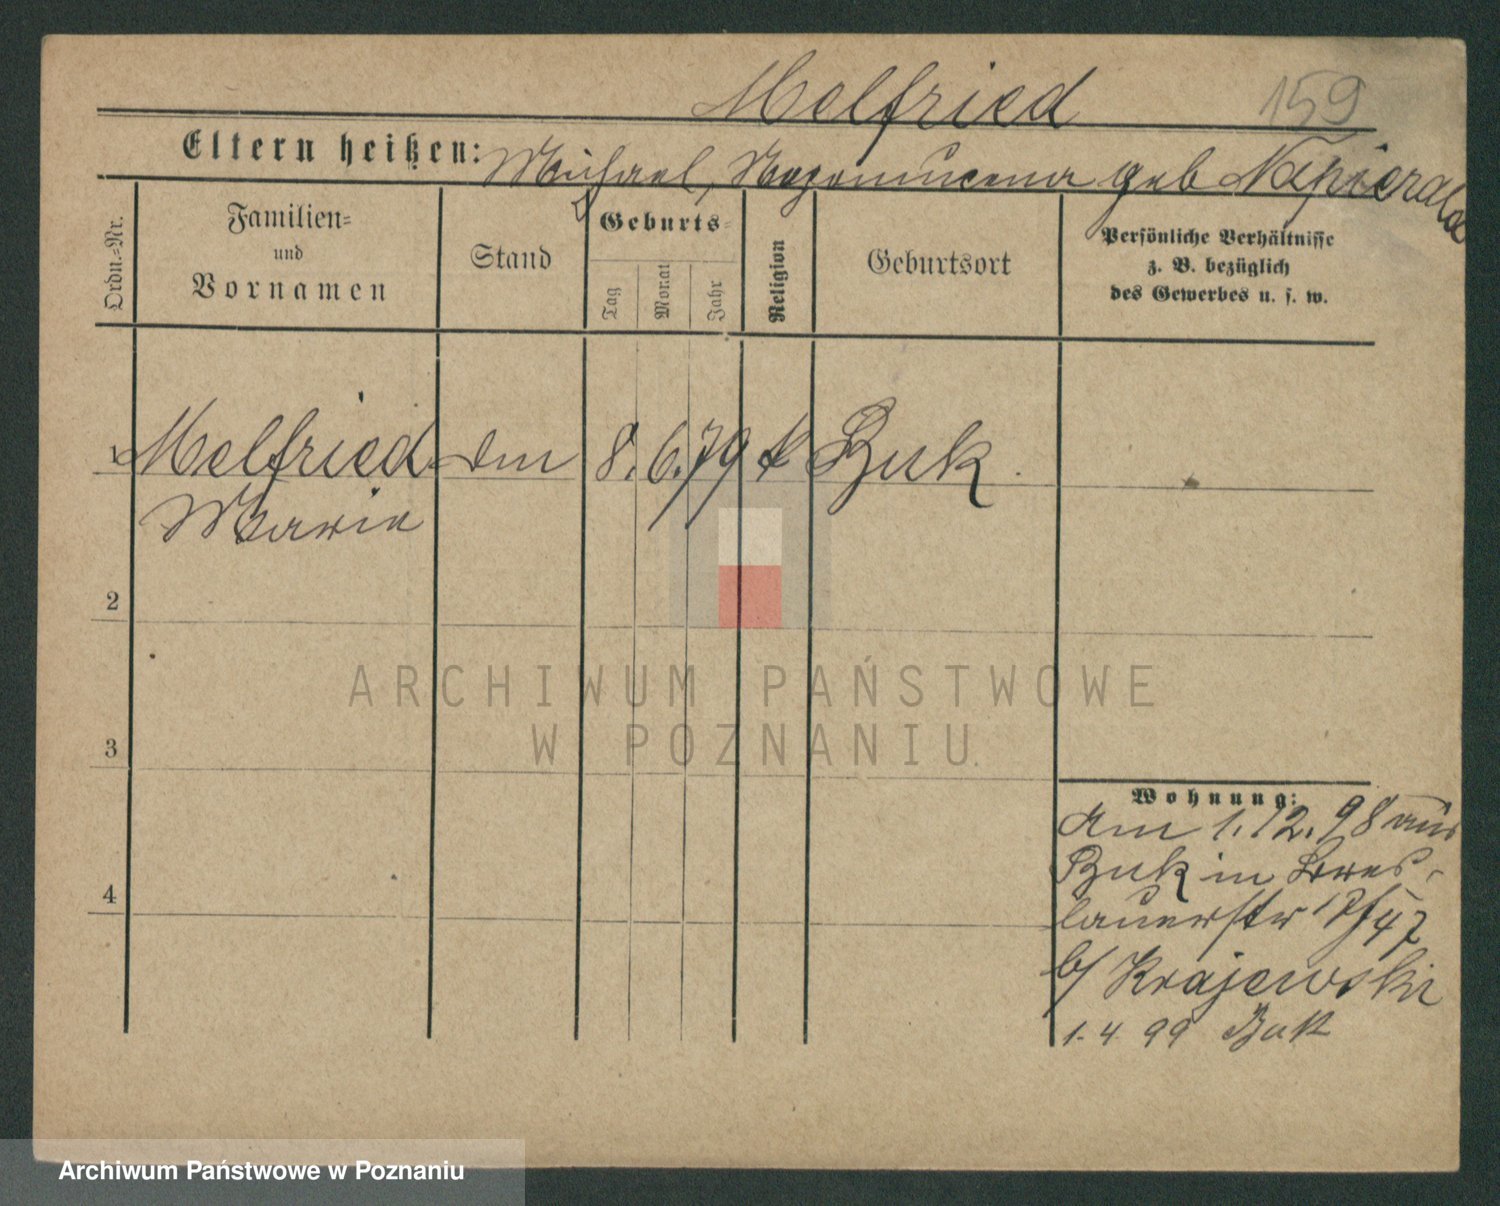 Melfried 159
Eltern heißen: Michael, Nepomucena geb Napierala
Ordn.-Nr.
Familien-
und
Vornamen
Stand
Geburts-
Tag
Monat
Jahr
Religion
Geburtsort
Persönliche Verhältnisse
z. B. bezüglich
des Gewerbes u. s. w.
1 Melfried 8. 6. 79 k Buk
Marie
2
3
4
ARCHIWUM PAŃSTWOWE
W POZNANIU
Wohnung:
Am 1. 12. 98 aus
Buk in Bres-
lauerstr
b/ Krajewski
1. 4 99 Buk
Archiwum Państwowe w Poznaniu